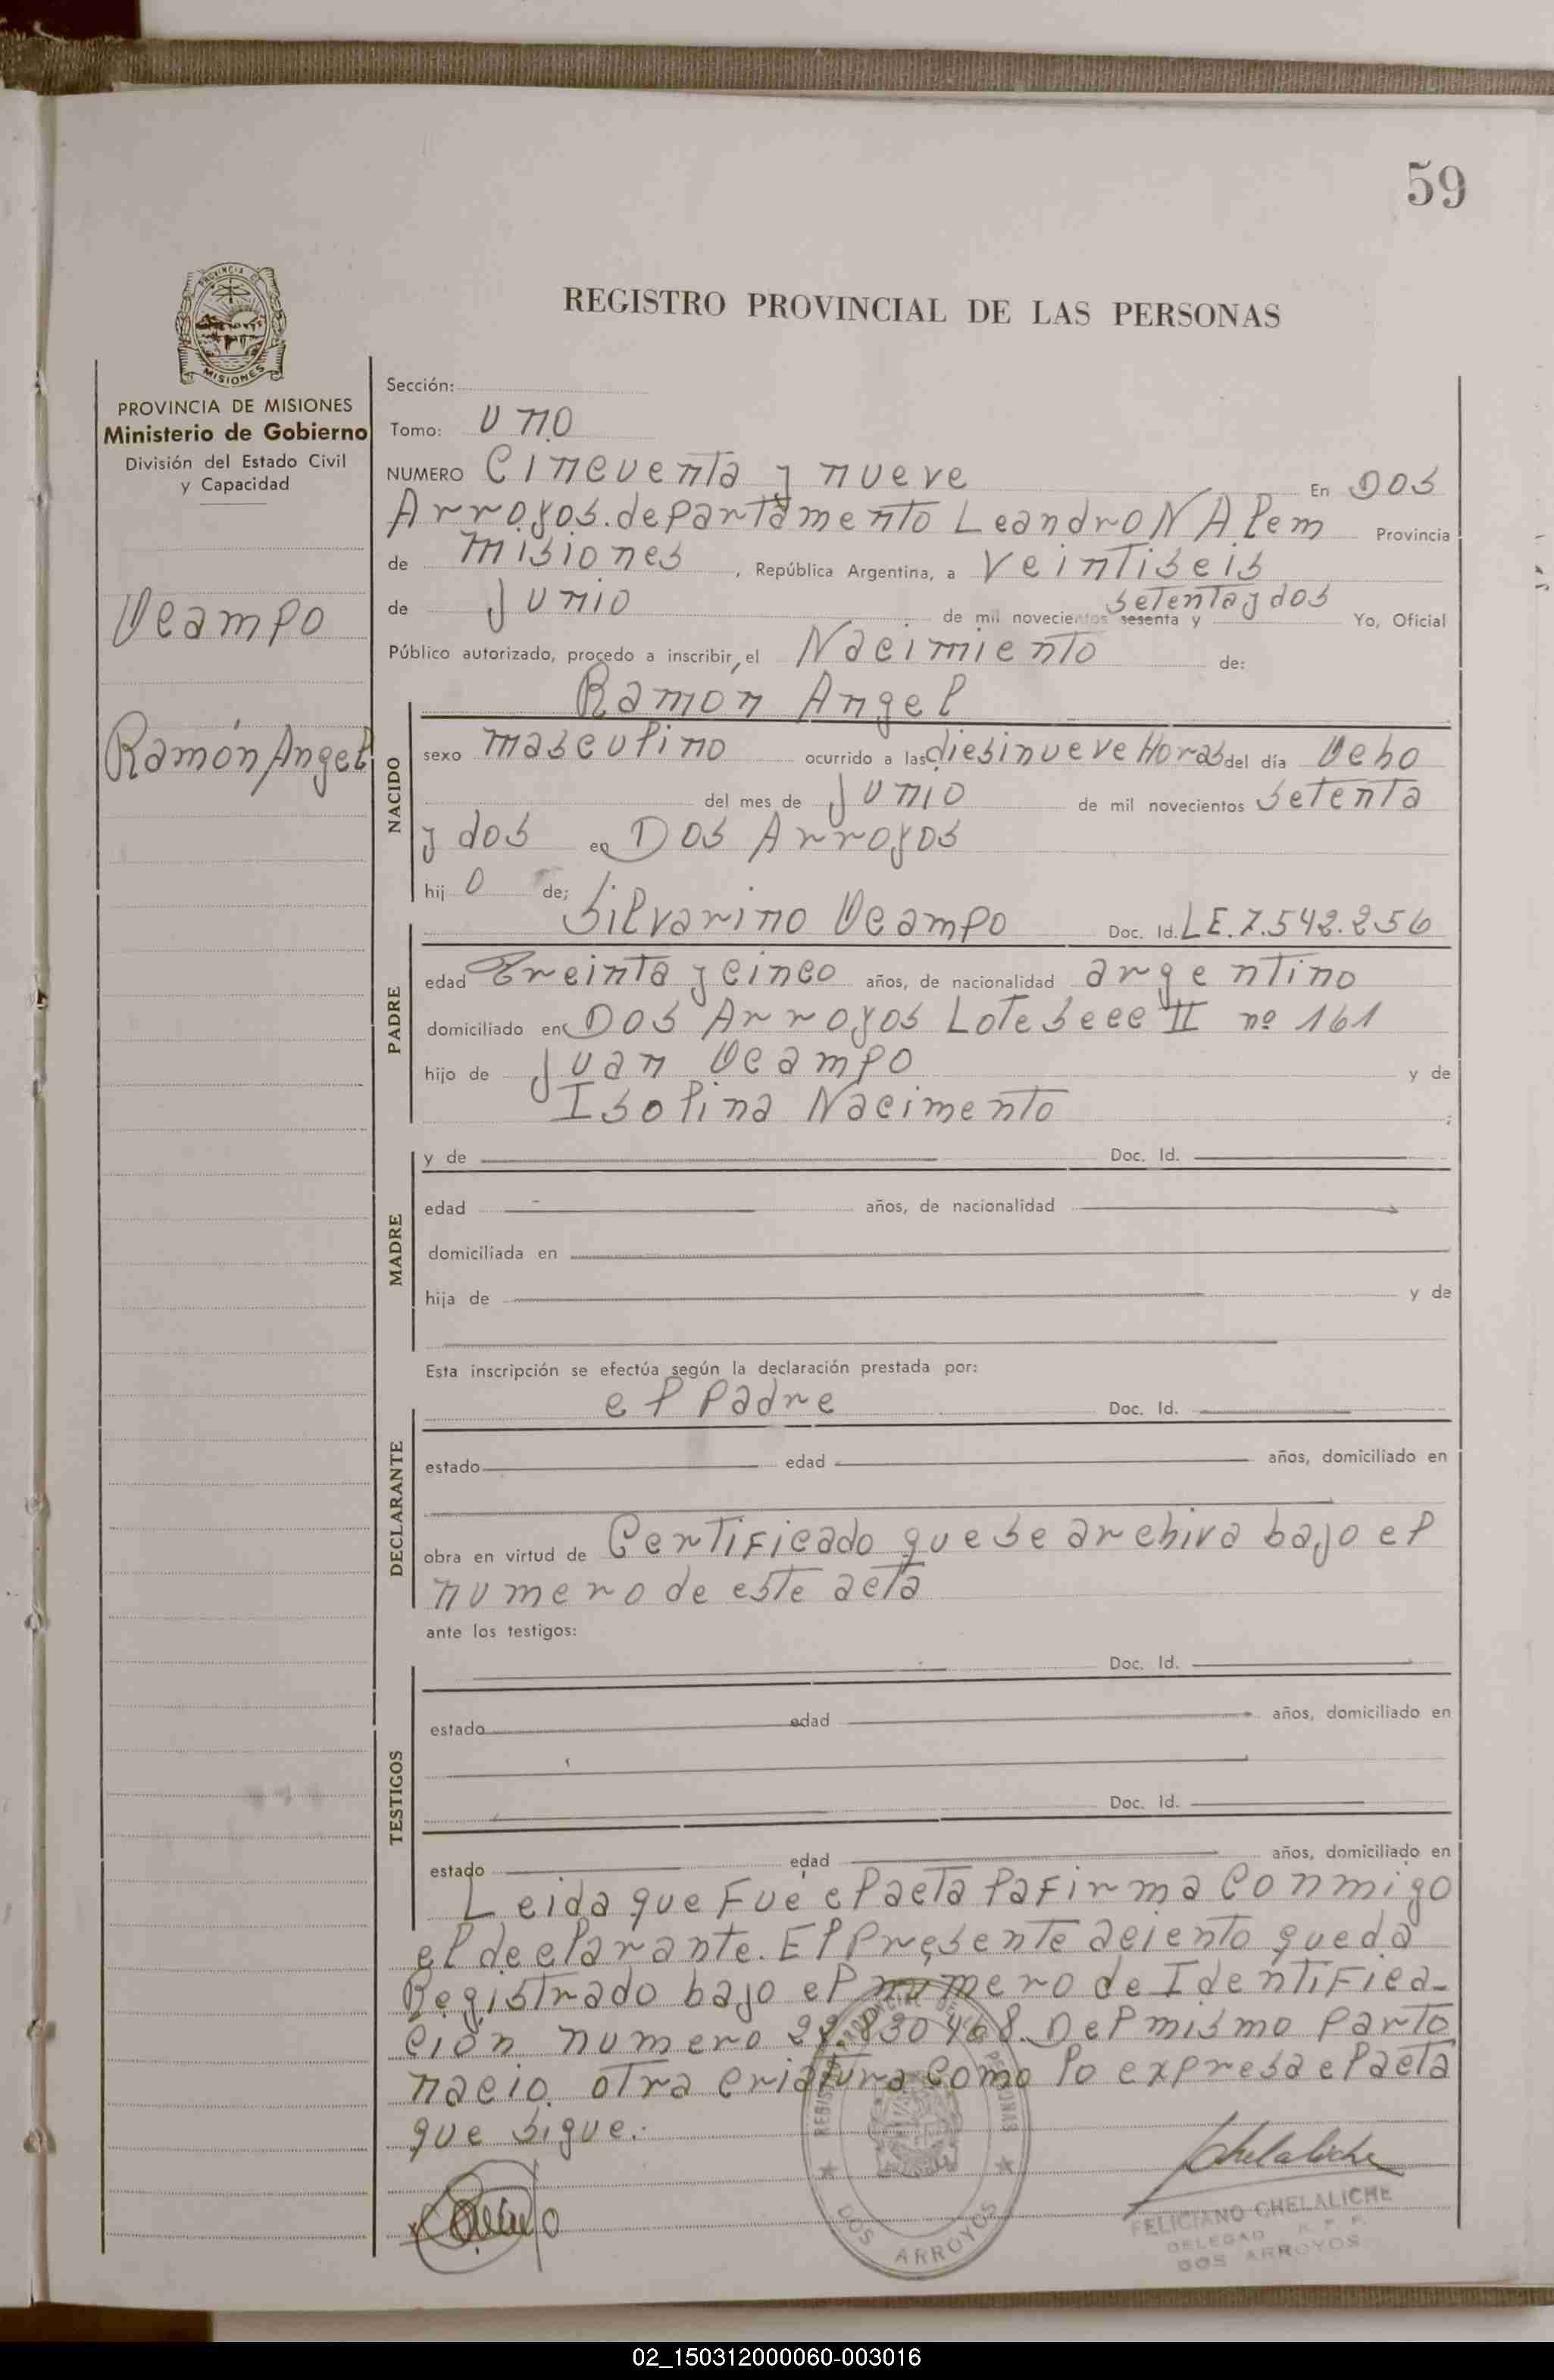 59
PROVINCIA DE MISIONES
REGISTRO PROVINCIAL DE LAS PERSONAS
PROVINCIA DE MISIONES
Ministerio de Gobierno
División del Estado Civil
y Capacidad
Ocampo
Ramón Angel
Sección:
Tomo: uno
NUMERO Cincuenta y nueve En Dos
Arroyos. departamento Leandro N Alem Provincia
de misiones, República Argentina, a veintiseis
de Junio de mil novecientos sesenta y setenta y dos Yo, Oficial
Público autorizado, procedo a inscribir, el Nacimiento de:
Ramon Angel
NACIDO
sexo masculino ocurrido a las diesinueve Horas del día Ocho
del mes de Junio de mil novecientos setenta
y dos en Dos Arroyos
hij o de;
PADRE
Silvarino Ocampo Doc. Id. L E. 7.542.256
edad Treinta y cinco años, de nacionalidad argentino
domiciliado en Dos Arroyos Lote Secc II nº 161
hijo de Juan Ocampo y de
Isolina Nacimento ;
MADRE
y de Doc. Id.
edad años, de nacionalidad
domiciliada en
hija de y de
Esta inscripción se efectúa según la declaración prestada por:
DECLARANTE
el Padre Doc. Id.
estado edad años, domiciliado en
obra en virtud de Certificado que se archiva bajo el
numero de este acta
ante los testigos:
TESTIGOS
Doc. Id.
estado edad años, domiciliado en
Doc. Id.
estado edad años, domiciliado en
Leida que Fué el acta la firma Conmigo
el declarante. El Presente aciento queda
Registrado bajo el numero de Identifica-
ción numero 22.830468. Del mismo Parto
nacio otra criatura Como lo expresa el acta
que sigue.
REGISTRO PROVINCIAL DE LAS PERSONAS
DOS ARROYOS
Chelaliche
FELICIANO CHELALICHE
DELEGAD R. P. P.
DOS ARROYOS
02_150312000060-003016